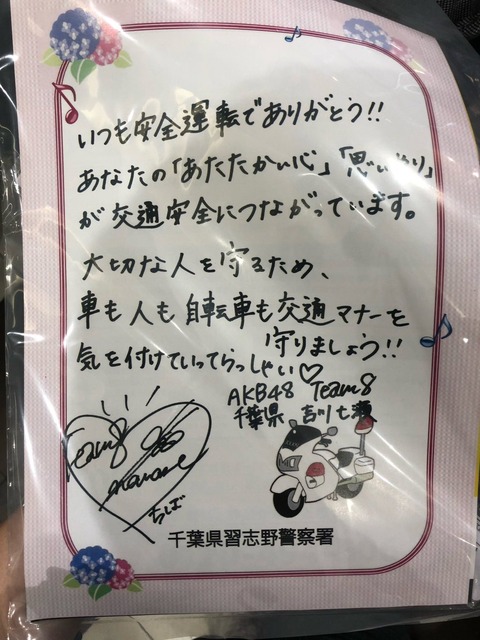 いつも安全運転でありがとう!!
あなたの「あたたかい心」「思いやり」
が交通安全につながっています。
大切な人を守るため、
車も人も自転車も交通マナーを
守りましょう!!
気を付けていってらっしゃい♡
AKB48 Team8
千葉県 吉川七瀬
Team8
nanase
ちば
千葉県習志野警察署